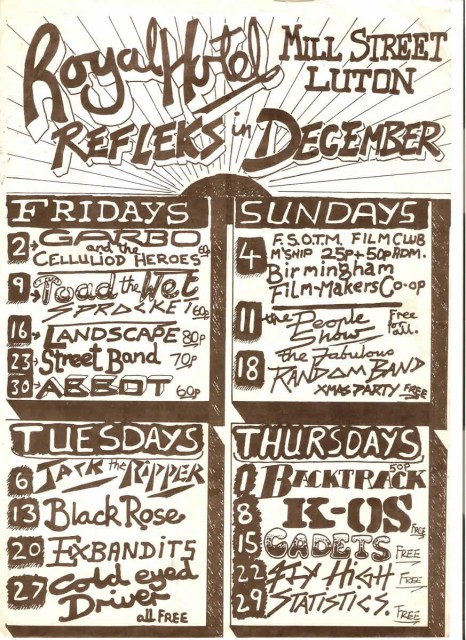 Royal Hotel
MILL STREET
LUTON
REFLEKS in DECEMBER
FRIDAYS
2 GARBO
and the
CELLULIOD HEROES 60p
9 Toad the Wet
SPROCKET 60p
16 LANDSCAPE 80p
23 Street Band 70p
30 ABBOT 60p
SUNDAYS
4 F.S.O.T.M. FILM CLUB
M'SHIP 25p + 50p ADM.
Birmingham
Film-Makers Co-op
11 the People
Show
Free
all.
18 the Fabulous
RANDOM BAND
XMAS PARTY FREE
TUESDAYS
6 JACK the RIPPER
13 Black Rose
20 EXBANDITS
27 Cold eyed
Driver
all FREE
THURSDAYS
BACKTRACK 50p
8 K-OS FREE
15 CADETS FREE
22 SIX HIGH FREE
29 STATISTICS. FREE